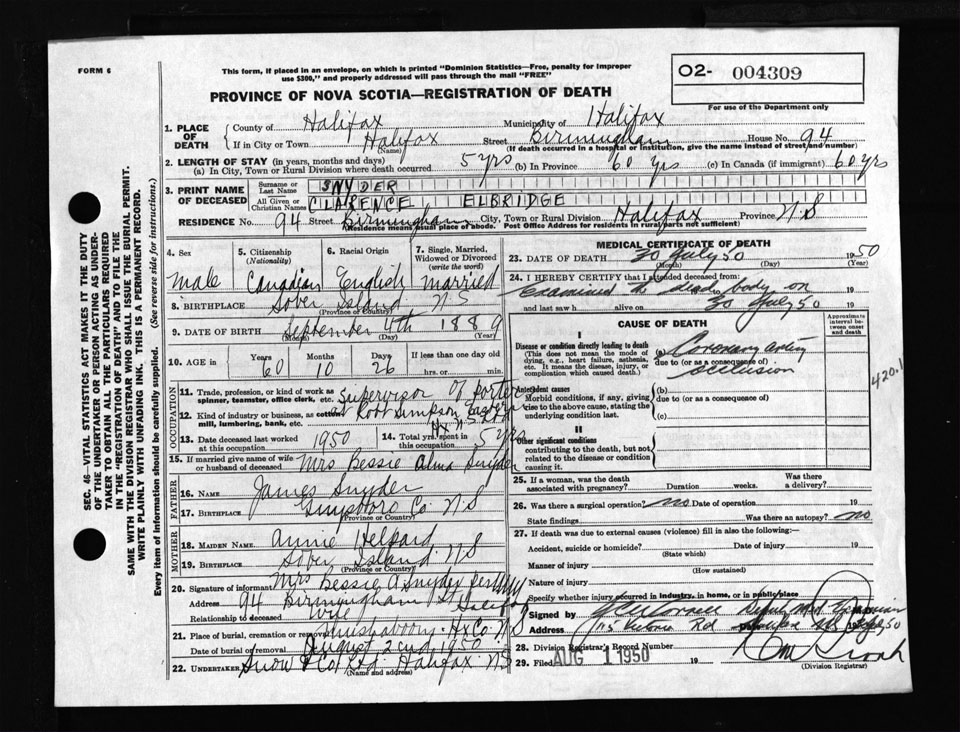 FORM 6
This form, if placed in an envelope, on which is printed "Dominion Statistics—Free, penalty for improper
use $300," and properly addressed will pass through the mail "FREE"
O2- 004309
For use of the Department only
PROVINCE OF NOVA SCOTIA—REGISTRATION OF DEATH
SEC. 46—VITAL STATISTICS ACT MAKES IT THE DUTY
OF THE UNDERTAKER OR PERSON ACTING AS UNDER-
TAKER TO OBTAIN ALL THE PARTICULARS REQUIRED
IN THE "REGISTRATION OF DEATH" AND TO FILE THE
SAME WITH THE DIVISION REGISTRAR WHO SHALL ISSUE THE BURIAL PERMIT.
WRITE PLAINLY WITH UNFADING INK. THIS IS A PERMANENT RECORD.
Every item of information should be carefully supplied. (See reverse side for instructions.)
1. PLACE OF DEATH
County of Halifax Municipality of Halifax
If in City or Town Halifax Street Birmingham House No. 94
(Name) (If death occurred in a hospital or institution, give the name instead of street and number)
2. LENGTH OF STAY (in years, months and days)
(a) In City, Town or Rural Division where death occurred 5 yrs (b) In Province 60 yrs (c) In Canada (if immigrant) 60 yrs
3. PRINT NAME OF DECEASED
Surname or Last Name SNYDER
All Given or Christian Names CLARENCE ELBRIDGE
RESIDENCE No. 94 Street Birmingham City, Town or Rural Division Halifax Province N S
(Residence means usual place of abode. Post Office Address for residents in rural parts not sufficient)
4. Sex
Male
5. Citizenship (Nationality)
Canadian
6. Racial Origin
English
7. Single, Married, Widowed or Divorced (write the word)
Married
8. BIRTHPLACE Sober Island N S
(Province or Country)
9. DATE OF BIRTH September 4th 1889
(Month) (Day) (Year)
10. AGE in Years 60 Months 10 Days 26 If less than one day old
hrs. or min.
OCCUPATION
11. Trade, profession, or kind of work as spinner, teamster, office clerk, etc. Supervisor of porters
12. Kind of industry or business, as cotton mill, lumbering, bank, etc. Robt Simpson Eastern
13. Date deceased last worked at this occupation 1950
14. Total yrs. spent in this occupation 5 yrs
15. If married give name of wife or husband of deceased Mrs Bessie Alma Snyder
FATHER
16. NAME James Snyder
17. BIRTHPLACE Co N S
(Province or Country)
MOTHER
18. MAIDEN NAME Annie
19. BIRTHPLACE Sober Island N S
(Province or Country)
20. Signature of informant Mrs Bessie A Snyder
Address 94 Birmingham St Halifax
Relationship to deceased Wife
21. Place of burial, cremation or removal Hx Co. N S
Date of burial or removal August 2nd, 1950
22. UNDERTAKER Snow & Co Ltd. Halifax N S
(Name and address)
MEDICAL CERTIFICATE OF DEATH
23. DATE OF DEATH 30 July 50 1950
(Month) (Day) (Year)
24. I HEREBY CERTIFY that I attended deceased from:
Examined the dead body on 19
and last saw h alive on 30 July 50 19
CAUSE OF DEATH
Approximate interval between onset and death
I
Disease or condition directly leading to death
(This does not mean the mode of dying, e.g., heart failure, asthenia, etc. It means the disease, injury, or complication which caused death.)
(a) Coronary artery
due to (or as a consequence of)
occlusion
420.1
Antecedent causes
Morbid conditions, if any, giving rise to the above cause, stating the underlying condition last.
(b)
due to (or as a consequence of)
(c)
II
Other significant conditions
contributing to the death, but not related to the disease or condition causing it.
25. If a woman, was the death associated with pregnancy? Duration weeks. Was there a delivery?
26. Was there a surgical operation? no Date of operation 19
State findings Was there an autopsy? no
27. If death was due to external causes (violence) fill in also the following:—
Accident, suicide or homicide? Date of injury 19
(State which)
Manner of injury
(How sustained)
Nature of injury
Specify whether injury occurred in industry, in home, or in public place
Signed by
Address 115 Victoria Rd
28. Division Registrar's Record Number
29. Filed AUG 1 1950 19
(Division Registrar)